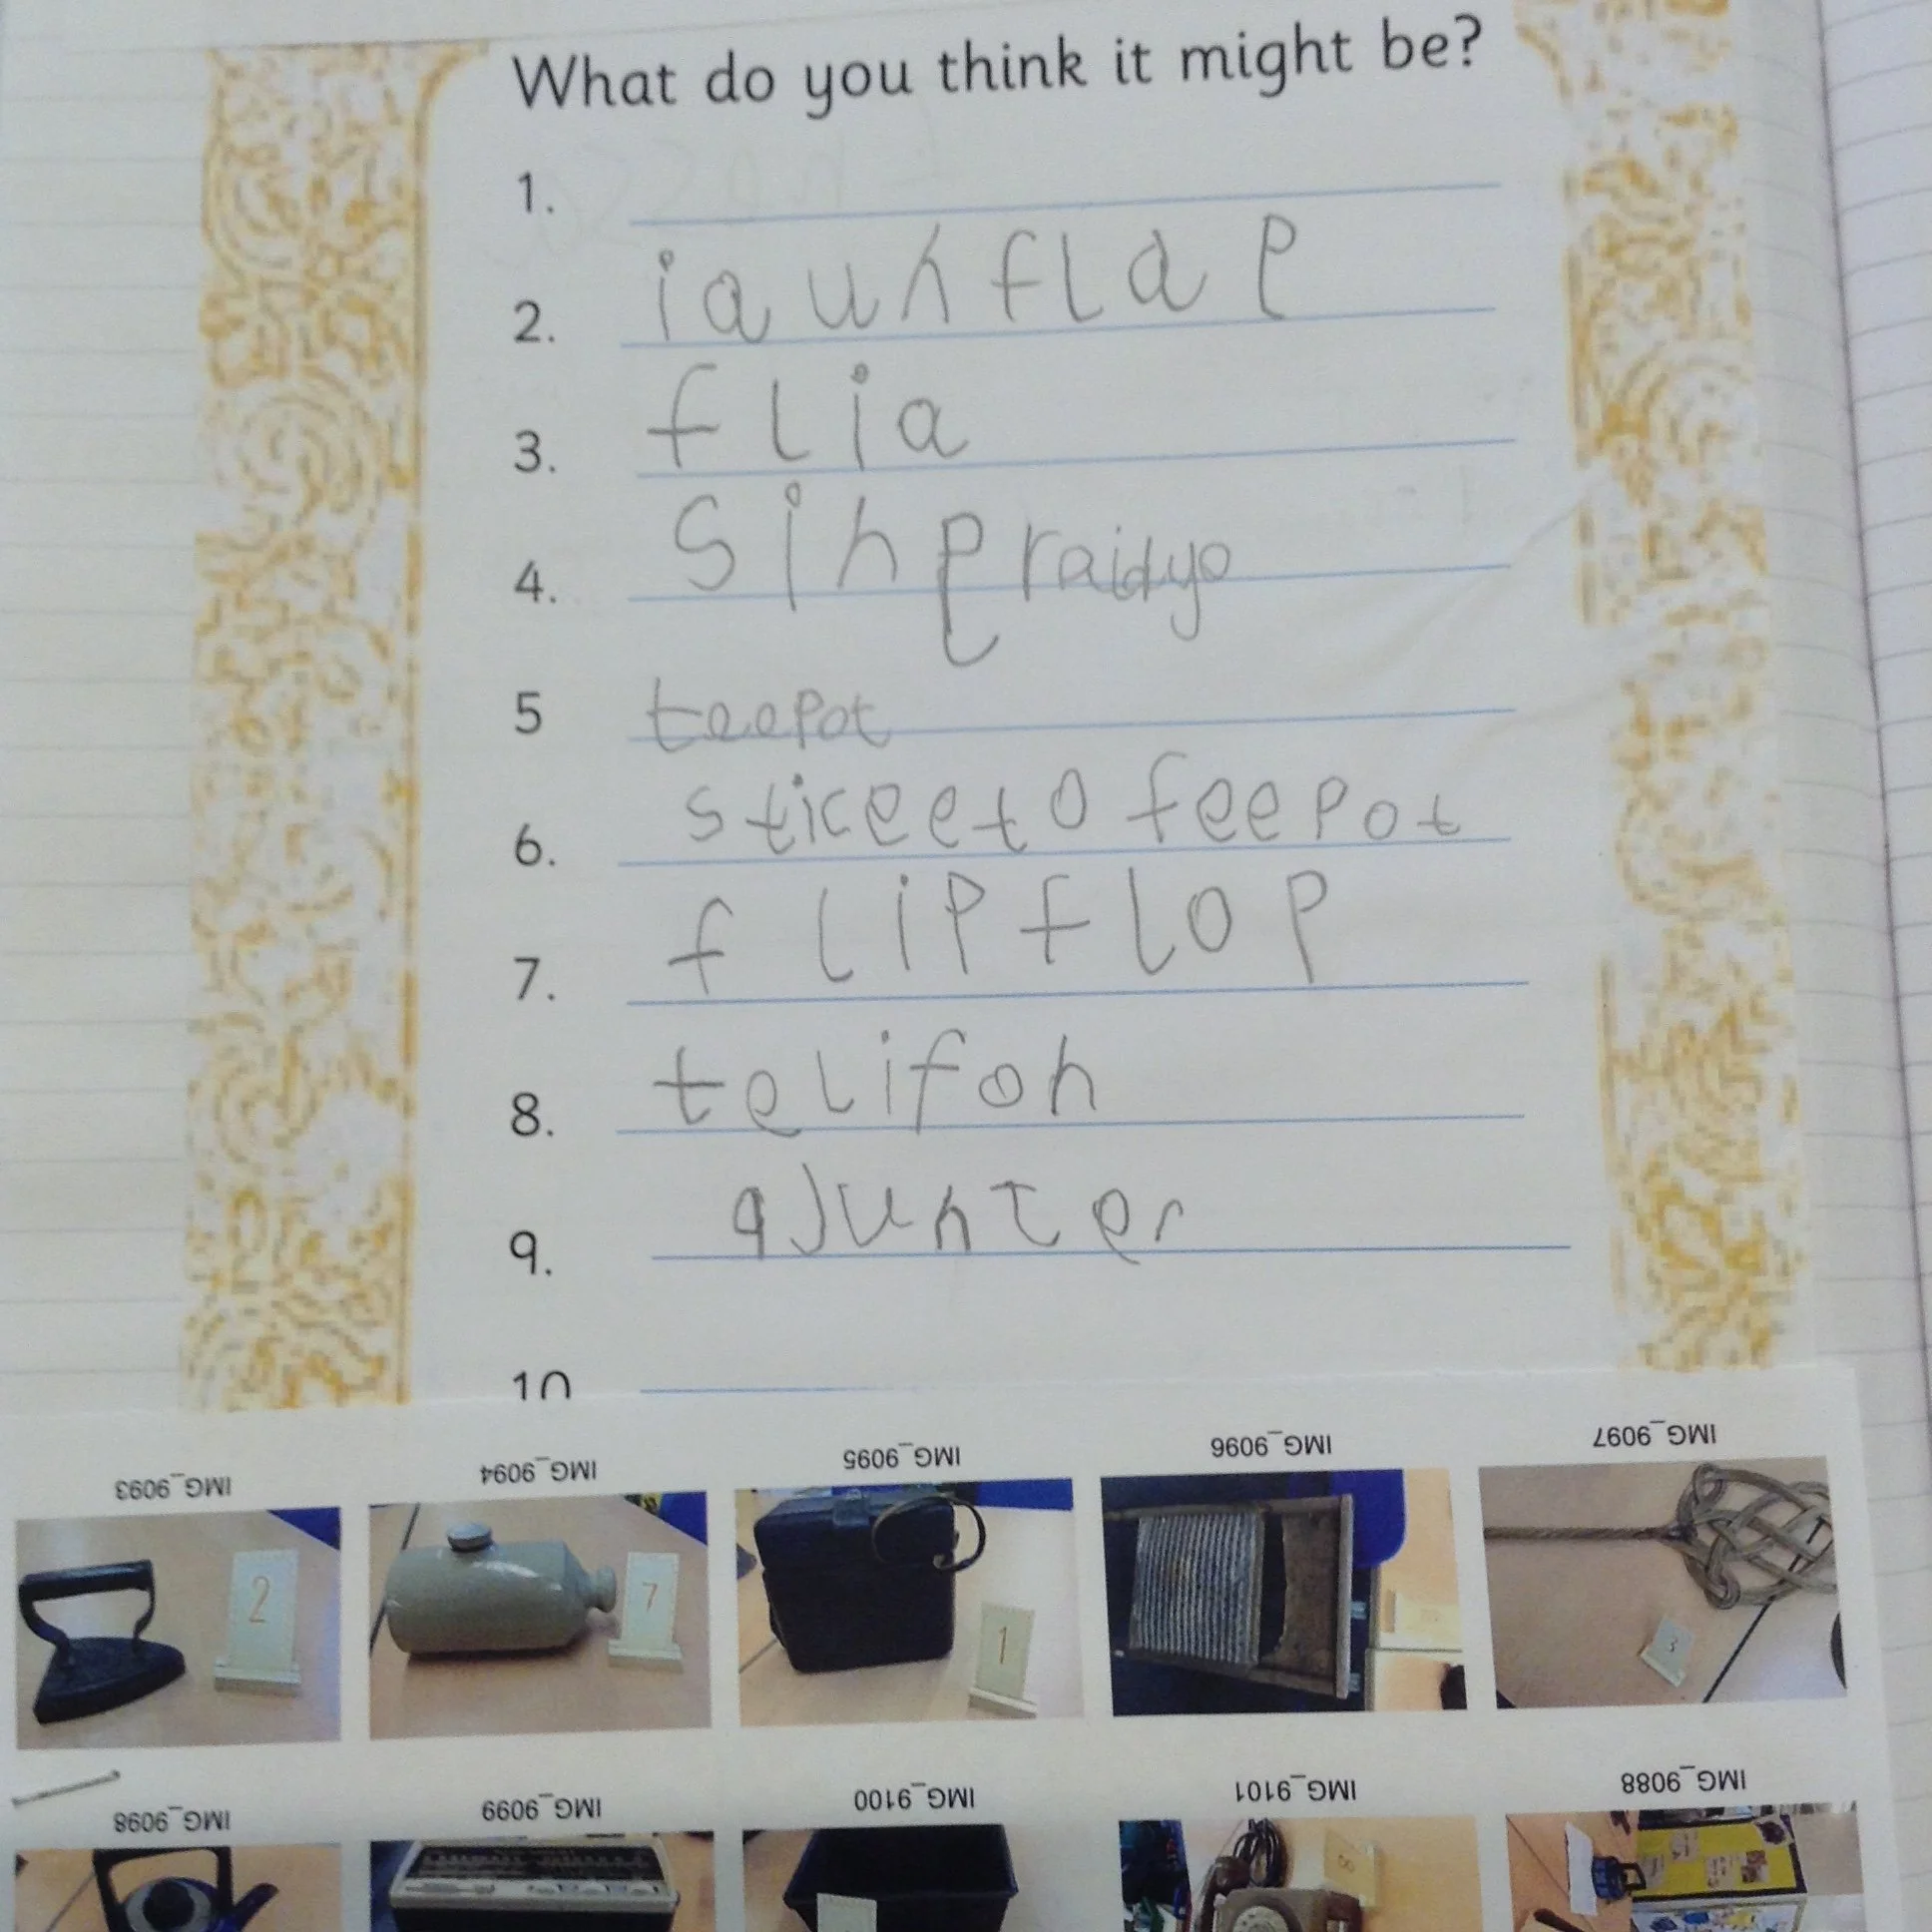 What do you think it might be?
1.
2. iaunflap
3. flia
4. sinp raidyo
5 teepot
6. sticeeto feepot
7. flipflop
8. telifon
9. aJunter
10
IMG_9093 IMG_9094 IMG_9095 IMG_9096 IMG_9097
2 7 1 3
IMG_9098 IMG_9099 IMG_9100 IMG_9101 IMG_9088
8